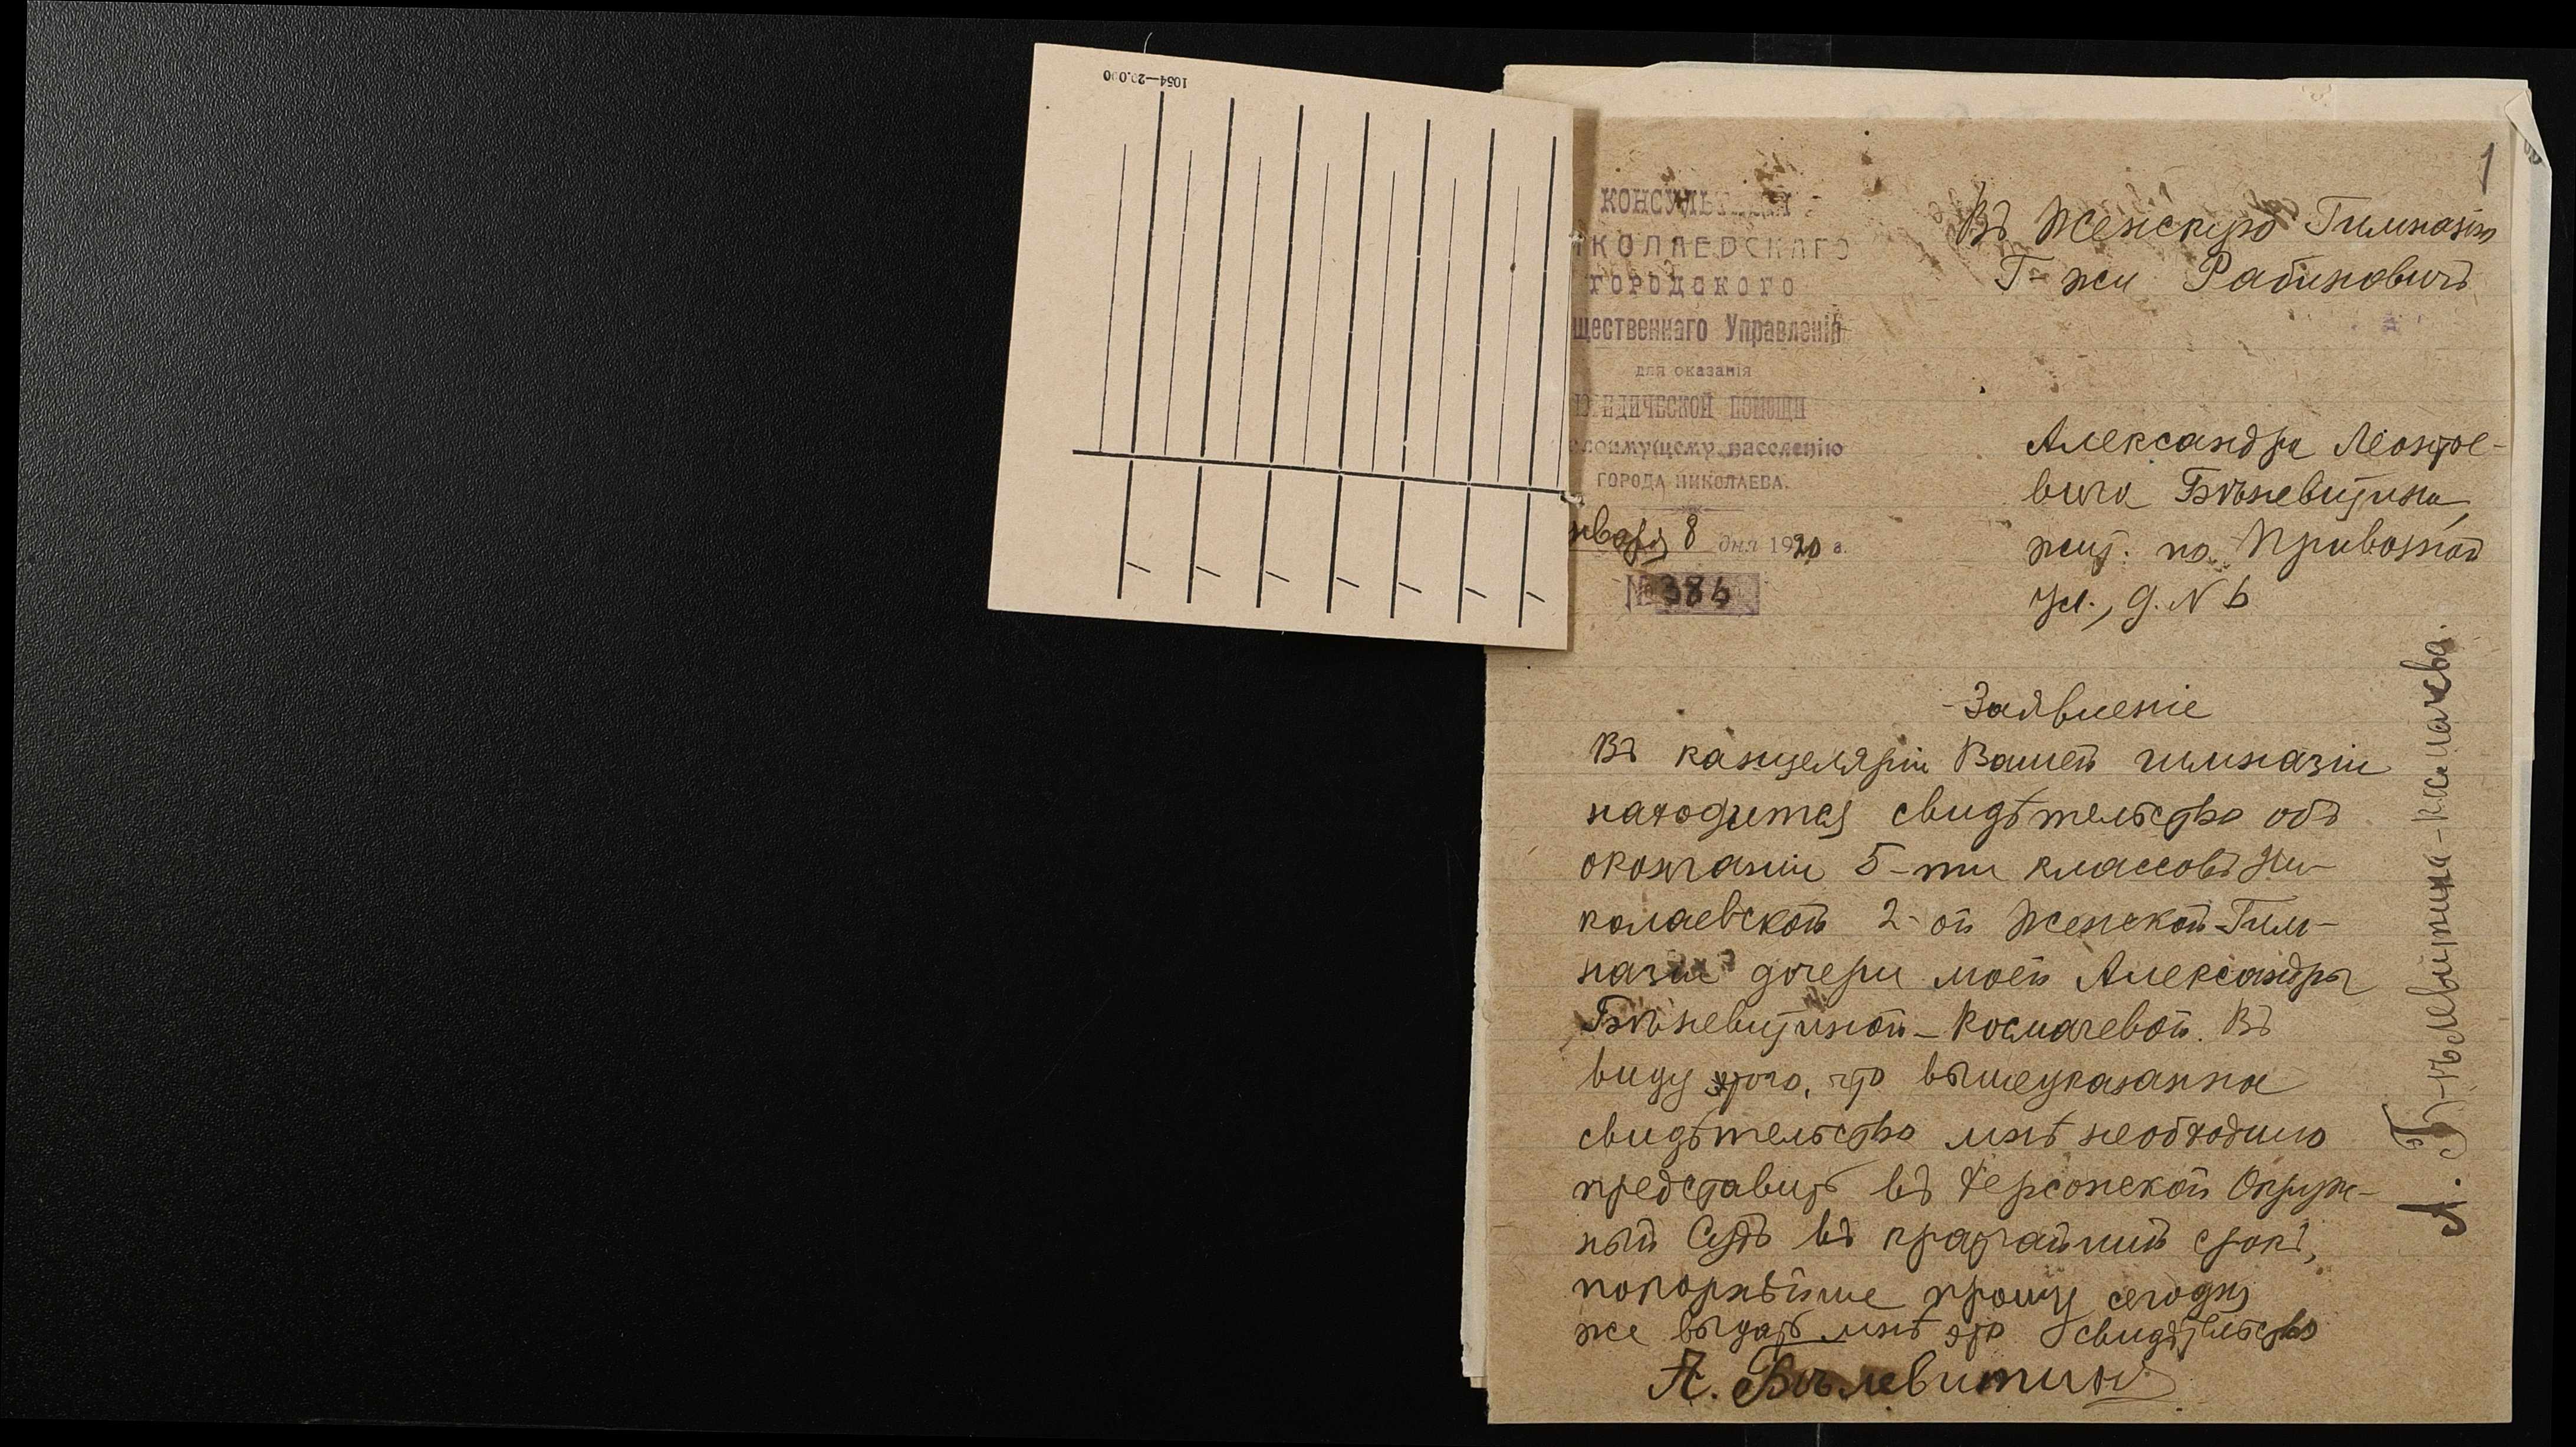 1054—20.000
1
КОНСУЛЬ
КОЛАЕВСКАГО
ГОРОДСКОГО
щественнаго Управленія
для оказанія
ЮРИДИЧЕСКОЙ ПОМОЩИ
неимущему населенію
ГОРОДА НИКОЛАЕВА.
нваря 8 дня 1920 г.
№ 386
Въ Женскую Гимназію
Г-жи Рабиновичъ
Александра Леонтье-
вича Бѣлевитина,
жит. по Привозной
ул., д. N 6
Заявленіе
Въ канцеляріи Вашей гимназіи
находится свидѣтельство объ
окончаніи 5-ти классовъ Ни-
колаевской 2-ой Женской Гим-
назіи дочери моей Александры
Бѣлевитиной-Космачевой. Въ
виду того, что вышеуказанное
свидѣтельство мнѣ необходимо
представить въ Херсонской Окруж-
ный Судъ въ кратчайшій срокъ,
покорнѣйше прошу сегодня
же выдать мнѣ это свидѣтельство
А. Бѣлевитин
А. Бѣлевитина-Касмачева.